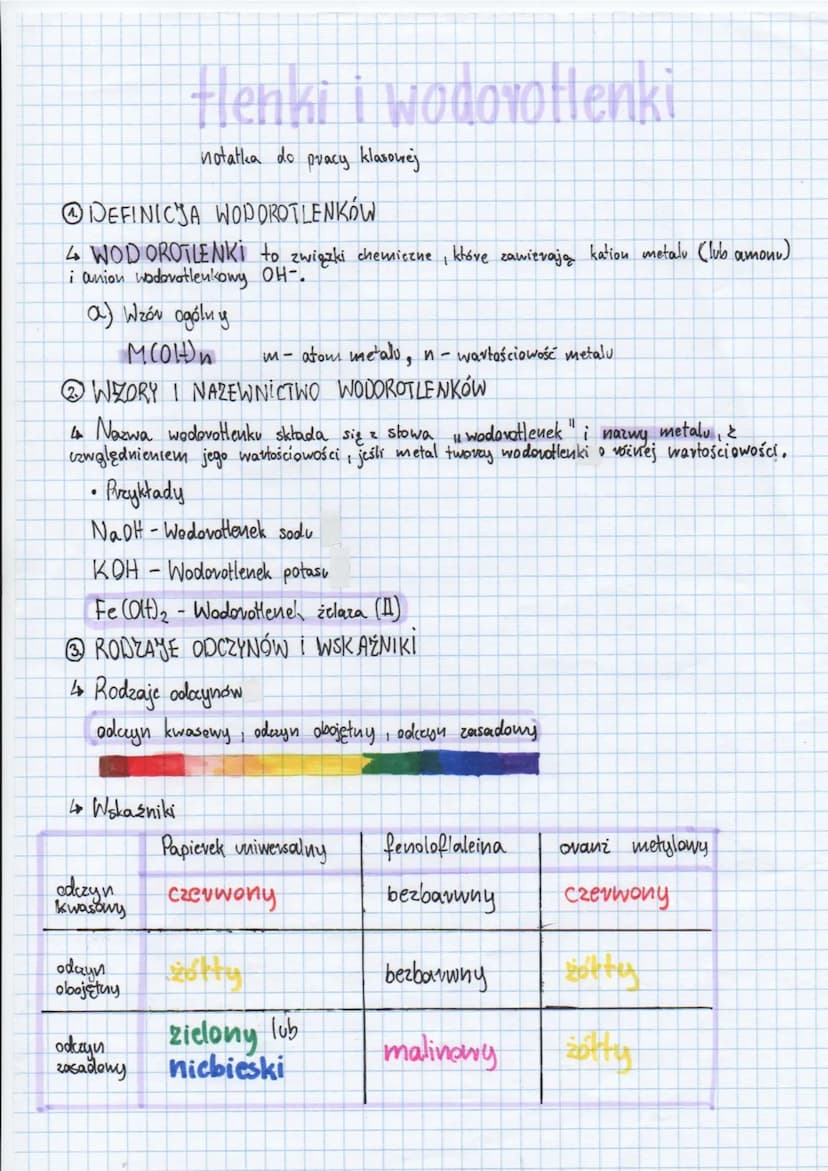 tlenki i wodorotlenki
notatka do pracy klasowej
① DEFINICJA WODOROTLENKÓW
↳ WODOROTLENKI to związki chemiczne, które zawierają kation metalu (lub amonu)
i anion wodorotlenkowy OH-.
a) Wzór ogólny
M(OH)n m- atom metalu, n- wartościowość metalu
② WZORY I NAZEWNICTWO WODOROTLENKÓW
↳ Nazwa wodorotlenku składa się z słowa „wodorotlenek" i nazwy metalu, z
uwzględnieniem jego wartościowości, jeśli metal tworzy wodorotlenki o różnej wartościowości.
• Przykłady
NaOH - Wodorotlenek sodu
KOH - Wodorotlenek potasu
Fe(OH)₂ - Wodorotlenek żelaza (II)
③ RODZAJE ODCZYNÓW I WSKAŹNIKI
↳ Rodzaje odczynów
odczyn kwasowy, odczyn obojętny, odczyn zasadowy
↳ Wskaźniki
Papierek uniwersalny fenoloflaleina oranż metylowy
odczyn
kwasowy czerwony bezbarwny czerwony
odczyn
obojętny żółty bezbarwny żółty
odczyn
zasadowy zielony lub
niebieski malinowy żółty